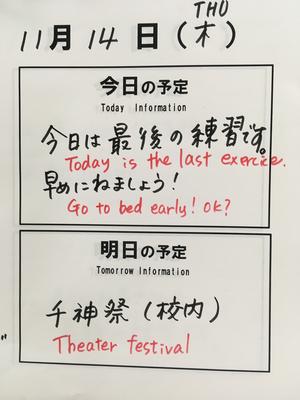 THU
11月14日(木)
今日の予定
Today Information
今日は最後の練習です。
Today is the last exercice.
早めにねましょう!
Go to bed early! OK?
明日の予定
Tomorrow Information
千神祭(校内)
Theater festival